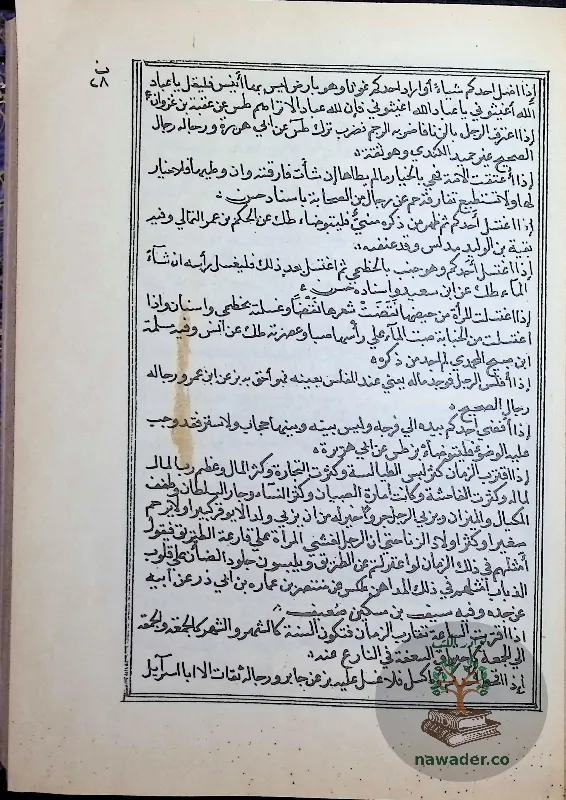 ٢٨
إذا اضل احدكم شيئا أو اراد احدكم عونا وهو بارض ليس بها أنيس فليقل يا عباد
الله أغيثوني يا عباد الله اغيثوني فإن لله عبادا لا تراهم طس عن عتبة بن غزوان
إذا اعترف الرجل بالزنا فأضر به الرجم فضرب ترك طس عن ابي هريرة ورجاله رجال
الصحيح غير حميد الكندي وهو ثقة
إذا أعتقت الامة فهي بالخيار ما لم يطأها إن شأت فارقته وان وطيها فلا خيار
لها ولا تستطيع فراقه حم عن رجال من الصحابة باسناد حسن
إذا اغتسل أحدكم ثم ظهر من ذكره شيئ فليتوضاء طك عن الحكم بن عمر الثمالي وفيه
بقية بن الوليد مدلس وقد عنعنه
إذا اغتسل أحدكم وهو جنب بالخطمي ثم اغتسل بعد ذلك فليغسل رأسه ان شآء
المآء طك عن ابن سعيد واسناده حسن
إذا اغتسلت المرأة من حيضها نقضت شعرها نقضا وغسلته بخطمي واسنان وإذا
اغتسلت من الجنابة صبت المآء علي رأسها صبا وعصرته طك عن أنس وفيه سلمة
ابن صبيح اليحمدي لم اجد من ذكره
إذا أفلس الرجل فوجد ماله يعني عند المفلس بعينه فهو أحق به بز عن ابن عمر ورجاله
رجال الصحيح
إذا أفضي أحدكم بيده الي فرجه وليس بينه وبينها حجاب ولا ستر فقد وجب
عليه الوضوء فليتوضاء بز طس عن ابي هريرة
إذا اقترب الزمان كثر لبس الطيالسة وكثرت التجارة وكثر المال وعظم رب المال
لماله وكثرت الفاحشة وكانت امارة الصبيان وكثر النسآء وجار السلطان وطفف
المكيال والميزان ويربي الرجل جروا خير له من ان يربي ولدا لا يوقر كبير ولا يرحم
صغير وكثر اولاد الزنا حتي ان الرجل ليغشي المرأة علي قارعة الطريق فيقول
أمثلهم في ذلك الزمان لو اعتزلتم عن الطريق ويلبسون جلود الضأن علي قلوب
الذياب أمثلهم في ذلك المداهن طكس عن منتصر بن عماره بن ابي ذر عن أبيه
عن جده وفيه سيف بن مسكين ضعيف
إذا اقتربت الساعة تقارب الزمان فتكون السنة كالشهر والشهر كالجمعة والجمعة
السعفة في النار ع عنه
إذا أكل فلا غسل عليه بز عن جابر ورجاله ثقات الا ابا اسرآئيل
نوادر الكتب
nawader.co